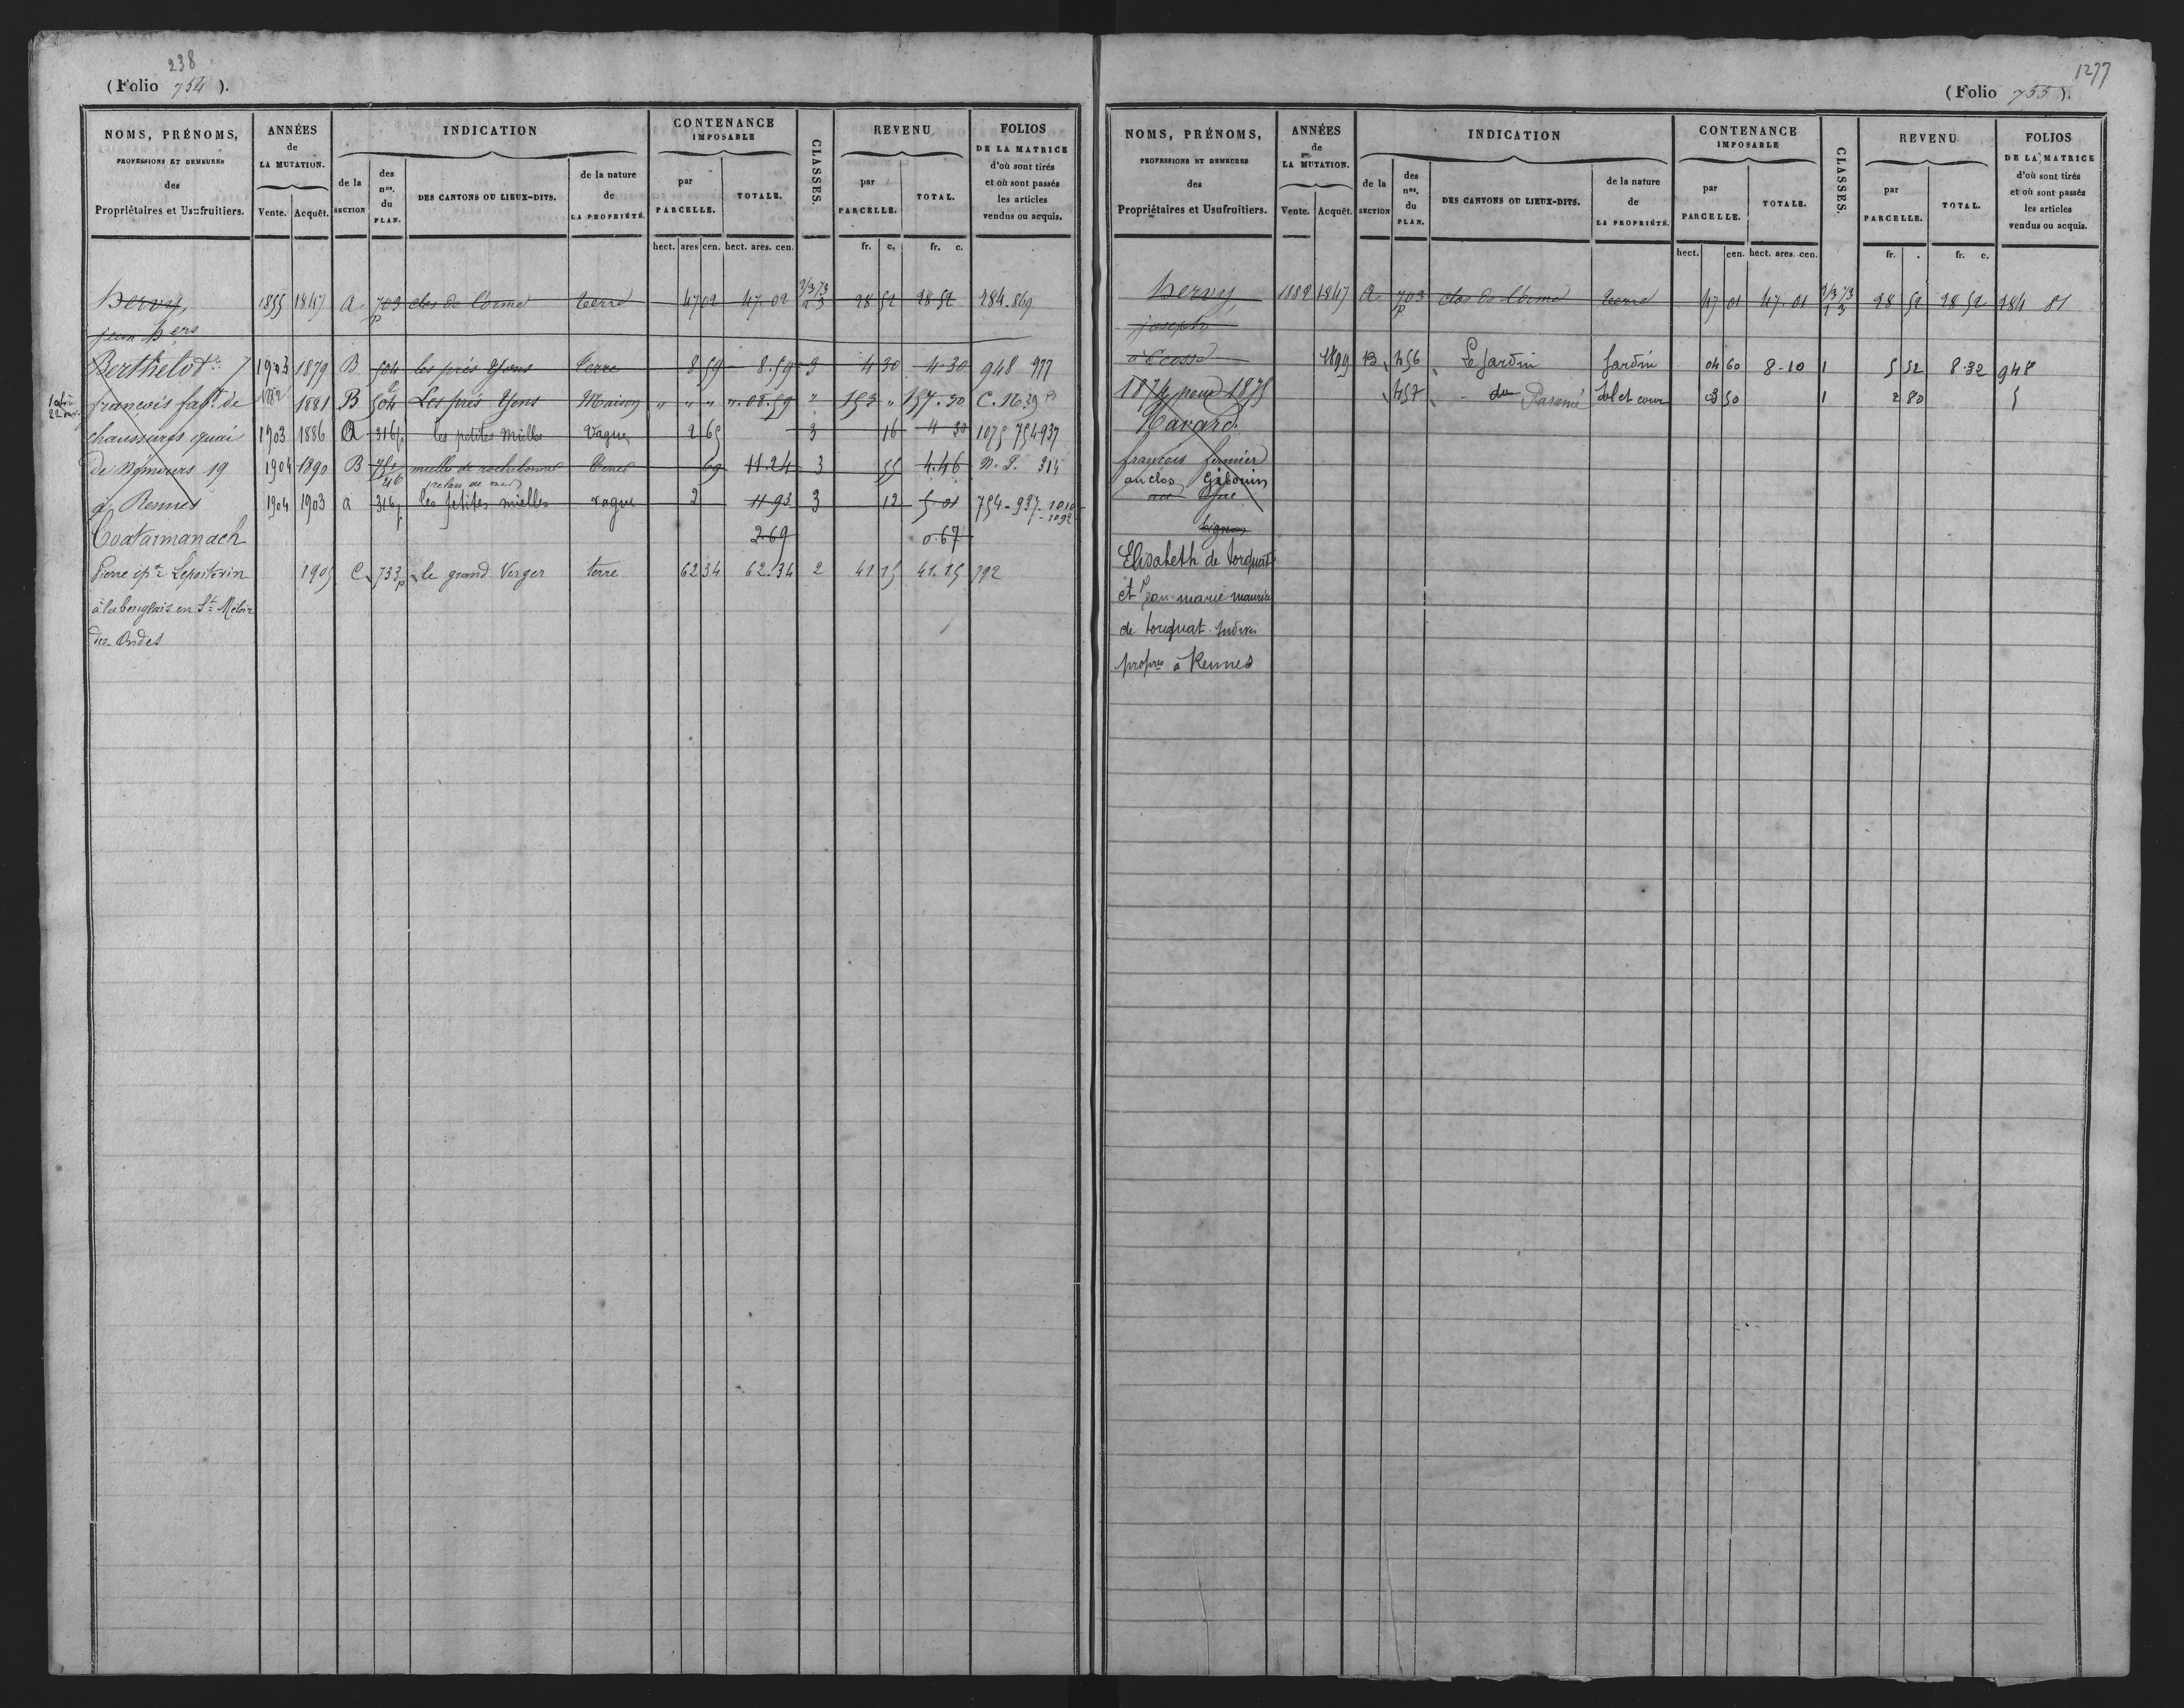 238
(Folio 754 ).
NOMS, PRÉNOMS,
PROFESSIONS ET DEMEURES
des
Propriétaires et Usufruitiers.
ANNÉES
de
LA MUTATION.
Vente. Acquêt.
INDICATION
de la
SECTION
des
nos.
du
PLAN.
DES CANTONS OU LIEUX-DITS.
de la nature
de
LA PROPRIÉTÉ.
CONTENANCE
IMPOSABLE
par
PARCELLE.
TOTALE.
CLASSES.
REVENU
par
PARCELLE.
TOTAL.
FOLIOS
DE LA MATRICE
d'où sont tirés
et où sont passés
les articles
vendus ou acquis.
hect. ares cen. hect. ares. cen. fr. c. fr. c.
hervy, 1855 1847 a 703 p clos de l'orme terre 47 02 47.02 1/3 2/3 2 3 28 52 28 52 284.869
jean
Berthelot 1903 1879 B 504 les prés Yons terre 8 59 8.59 3 4 30 4.30 948 977
françois fabt. de 1882 1881 B 504 Les prés Yons Maison " " " ".08.59 " 153 " 157.30
chaussures quai 1903 1886 a 316p les petites Mielles Vague 2 65 3 16 4 30 1075 754-937
de Nemours 19 1904 1890 B 751 46 mielle de rochebonne terre 69 11.24 3 35 4.46 N. P. 314
(relais de mer)
à Rennes 1904 1903 a 316p les petites mielles vague 2 11 93 3 12 5.01 754-937-1010
1092
Coatarmanach 2.69 0.67
Pierre épx Lepoitevin 1905 C 733p le grand Verger terre 62 34 62.34 2 41 15 41.15 792
en St Méloir
des Ondes
1277
(Folio 755 ).
NOMS, PRÉNOMS,
PROFESSIONS ET DEMEURES
des
Propriétaires et Usufruitiers.
ANNÉES
de
LA MUTATION.
Vente. Acquêt.
INDICATION
de la
SECTION
des
nos.
du
PLAN.
DES CANTONS OU LIEUX-DITS.
de la nature
de
LA PROPRIÉTÉ.
CONTENANCE
IMPOSABLE
par
PARCELLE.
TOTALE.
CLASSES.
REVENU
par
PARCELLE.
TOTAL.
FOLIOS
DE LA MATRICE
d'où sont tirés
et où sont passés
les articles
vendus ou acquis.
hect. cen. hect. ares. cen. fr. . fr. c.
hervy 1882 1847 a 703 p clos de l'orme terre 47 01 47.01 1/3 2/3 2 3 28 52 28 52 284 81
joseph
à Ecosse 1899 B 456 Le Jardin Jardin 04 60 8-10 1 5 52 8.32 948
1874 pour 1875 457 - du Paramé Sol et cour 3 50 1 2 80
Havard
françois fermier
au clos Gibouin
Elisabeth de torquat
et Jean-marie maurice
de torquat Indivis
propres à Rennes